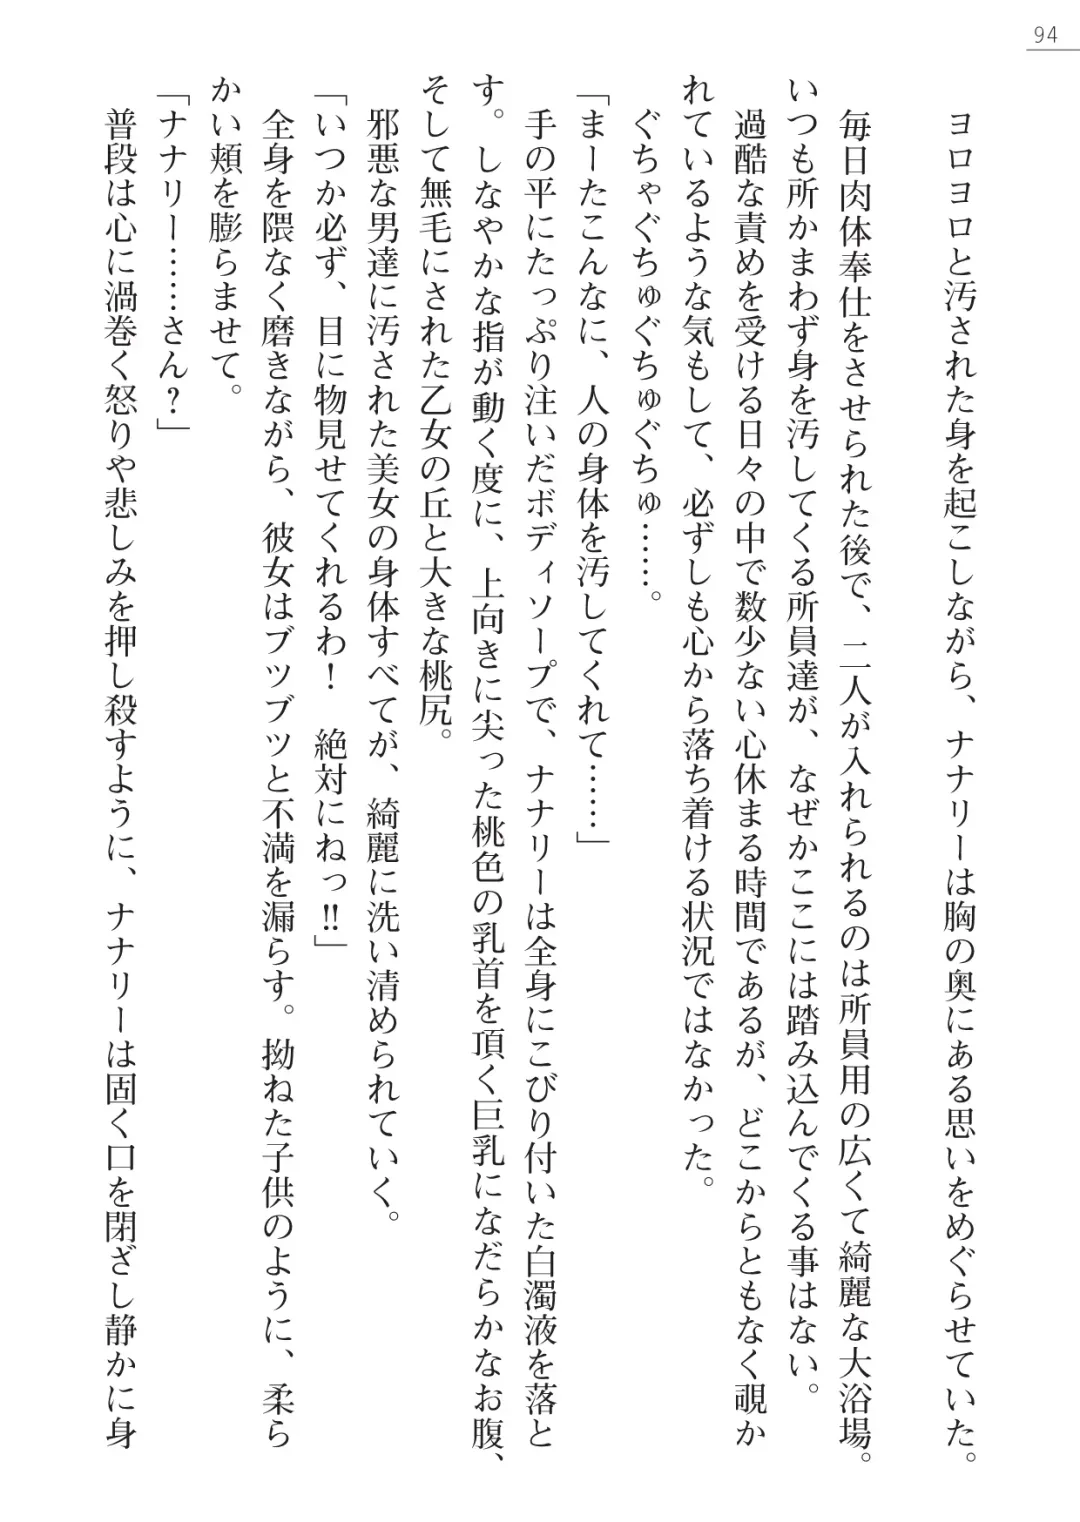 94
ヨロヨロと汚された身を起こしながら、ナナリーは胸の奥にある思いをめぐらせていた。
毎日肉体奉仕をさせられた後で、二人が入れられるのは所員用の広くて綺麗な大浴場。
いつも所かまわず身を汚してくる所員達が、なぜかここには踏み込んでくる事はない。
過酷な責めを受ける日々の中で数少ない心休まる時間であるが、どこからともなく覗か
れているような気もして、必ずしも心から落ち着ける状況ではなかった。
ぐちゃぐちゅぐちゅぐちゅ……。
「まーたこんなに、人の身体を汚してくれて……」
手の平にたっぷり注いだボディソープで、ナナリーは全身にこびり付いた白濁液を落と
す。しなやかな指が動く度に、上向きに尖った桃色の乳首を頂く巨乳になだらかなお腹、
そして無毛にされた乙女の丘と大きな桃尻。
邪悪な男達に汚された美女の身体すべてが、綺麗に洗い清められていく。
「いつか必ず、目に物見せてくれるわ！　絶対にねっ!!」
全身を隈なく磨きながら、彼女はブツブツと不満を漏らす。拗ねた子供のように、柔ら
かい頬を膨らませて。
「ナナリー……さん？」
普段は心に渦巻く怒りや悲しみを押し殺すように、ナナリーは固く口を閉ざし静かに身